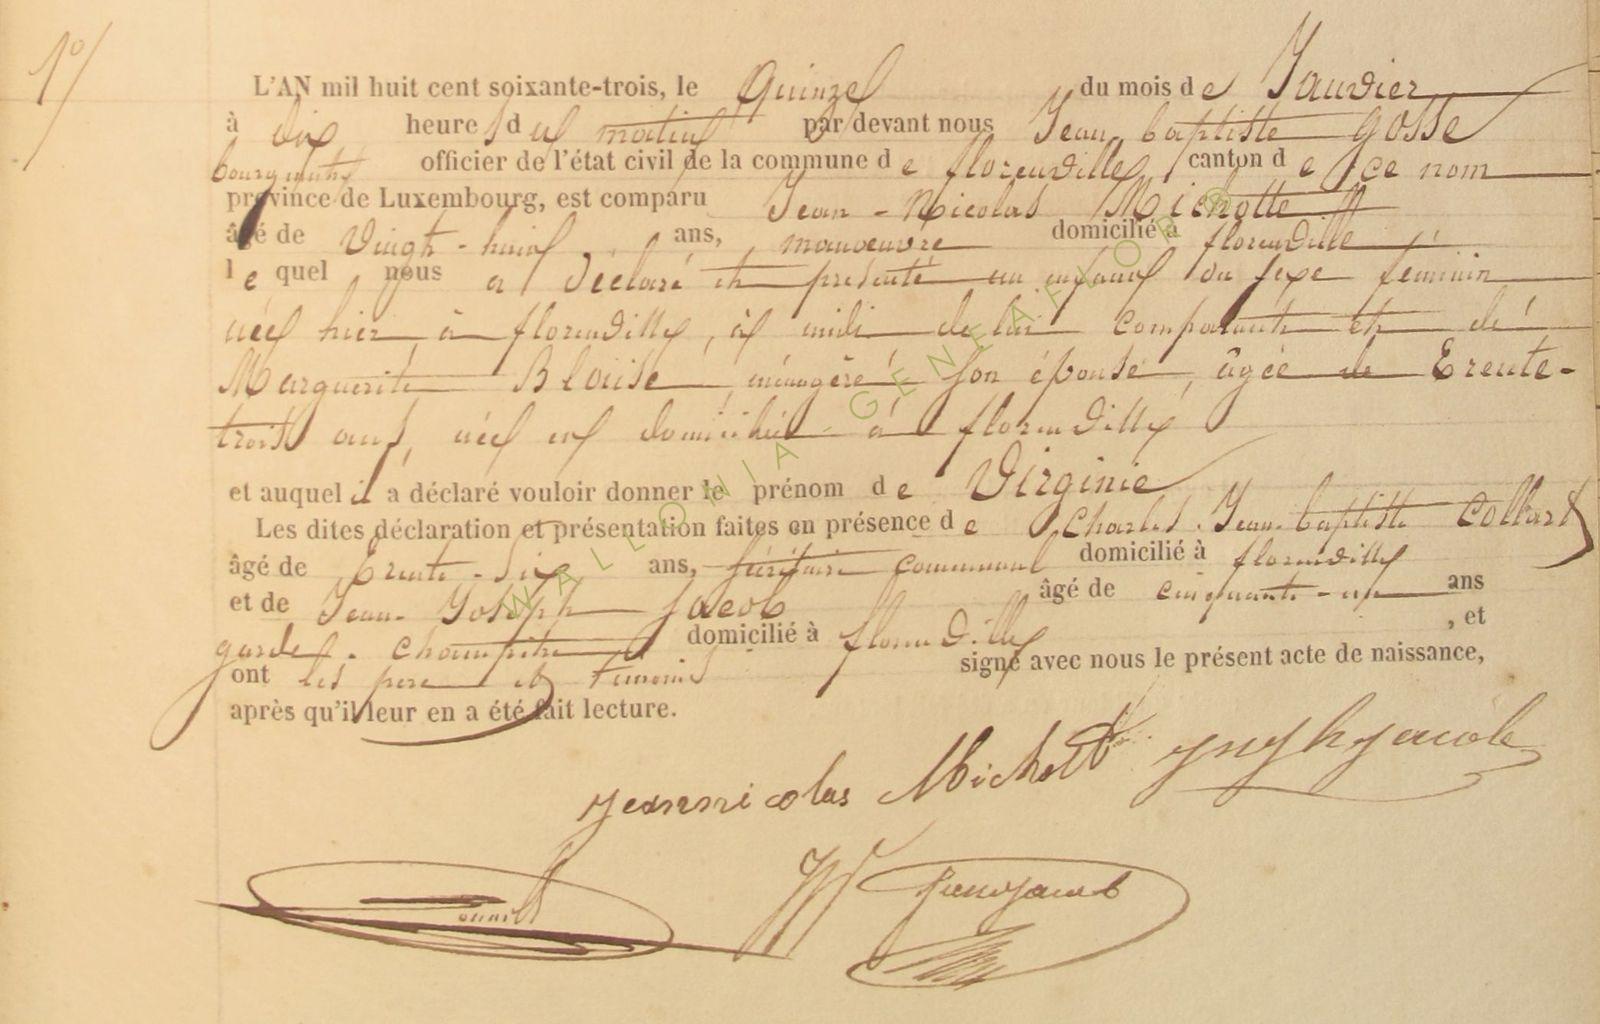 1°/
L'AN mil huit cent soixante-trois, le quinze du mois de Janvier
à dix heures du matin par devant nous Jean baptiste Gosse
bourgmestre officier de l'état civil de la commune de florenville canton de ce nom
province de Luxembourg, est comparu Jean-Nicolas Michotte
âgé de vingt-huit ans, manœuvre domicilié à florenville
lequel nous a déclaré et présenté un enfant du sexe féminin
née hier à florenville, à midi de lui comparant et de
Marguerite Blaise, ménagère son épouse, âgée de trente-
trois ans, née et domiciliée à florenville
et auquel il a déclaré vouloir donner le prénom de Virginie
Les dites déclaration et présentation faites en présence de Charles Jean-baptiste Collart
âgé de trente-six ans, secrétaire communal domicilié à florenville
et de Jean-Joseph Jacob âgé de cinquante-un ans
garde-champêtre domicilié à florenville, et
ont les père et témoins signé avec nous le présent acte de naissance,
après qu'il leur en a été fait lecture.
jeannicolas Michott
WALLONIA-GENEAFLORE